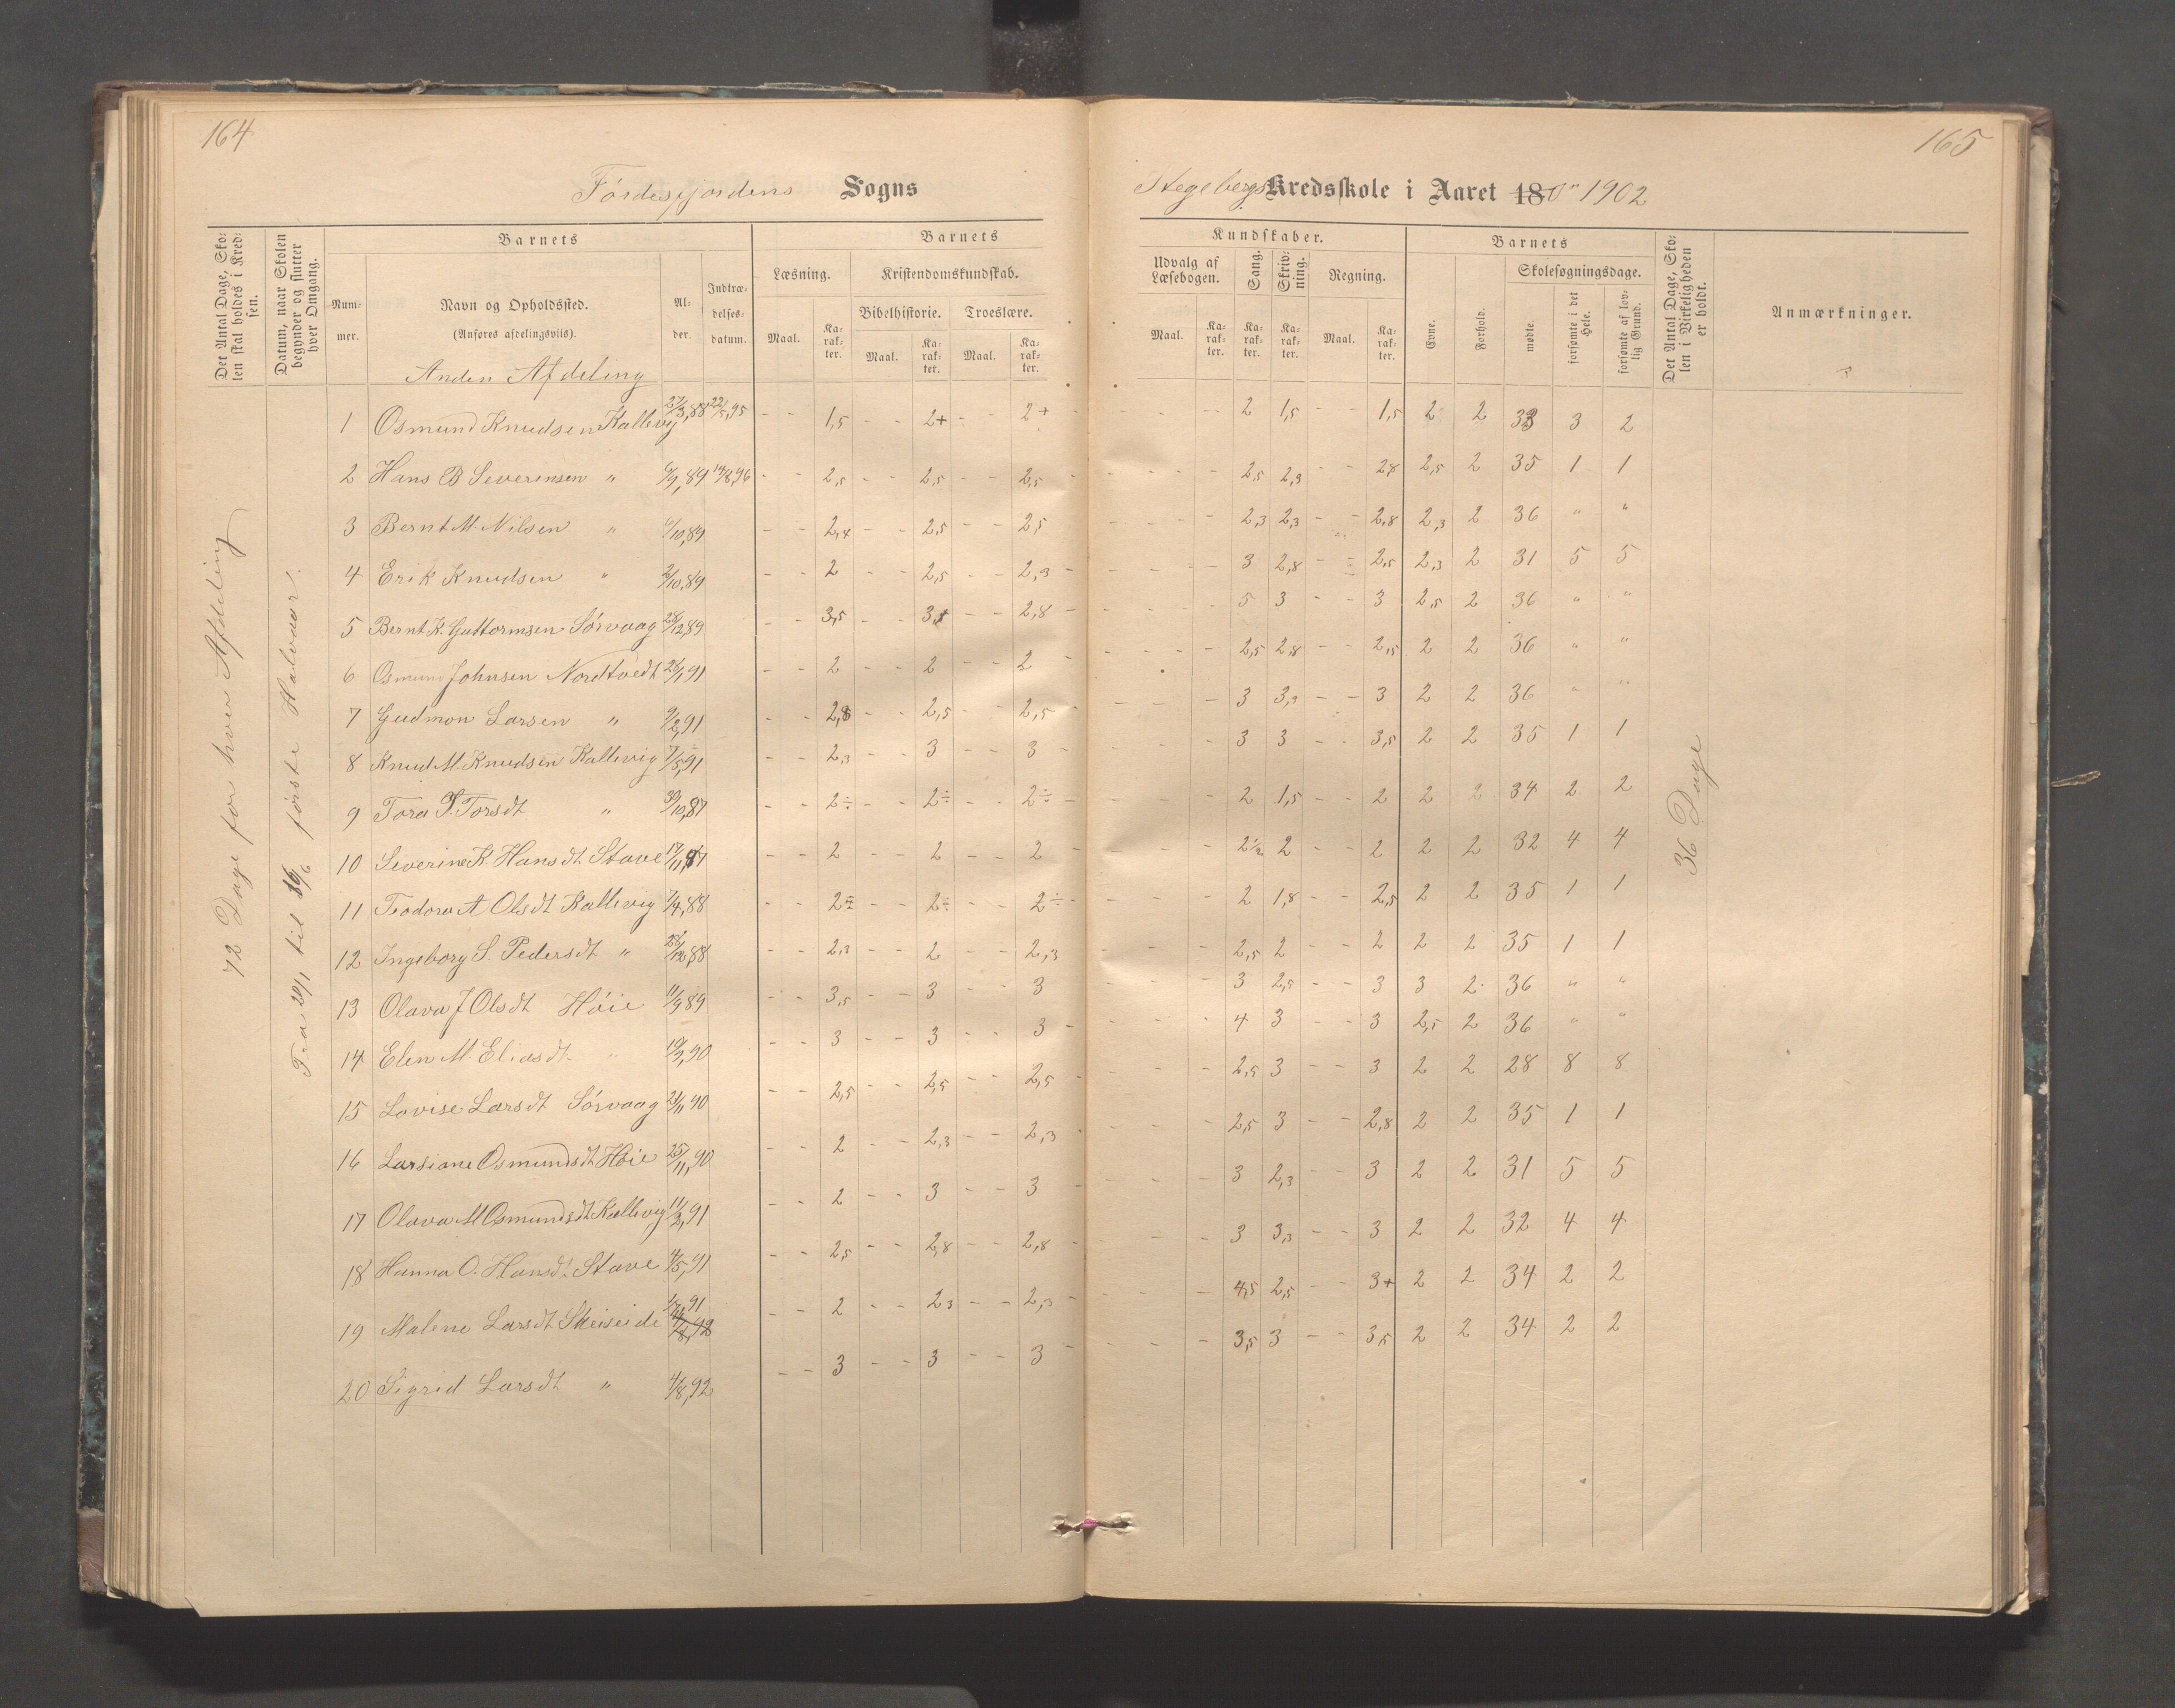 164
Fördesfjordens Sogns
Det Antal Dage, Skolen skal holdes i Kredsen.
Datum, naar Skolen begynder og slutter hver Omgang.
Barnets
Nummer.
Navn og Opholdssted.
(Anføres afdelingsviis).
Alder.
Indtrædelsesdatum.
Barnets
Læsning.
Kristendomskundskab.
Bibelhistorie. Troeslære.
Maal. Karakter. Maal. Karakter. Maal. Karakter.
Anden Afdeling
72 Dage for hver Afdeling
første Halvaar.
1 Osmund Knudsen Kallevig 27/3,88 22/5,95 - - 1,5 - - 2+ - - 2+
2 Hans B Severinsen " 6/9,89 14/8,96 - - 2,5 - - 2,5 - - 2,5
3 Bernt M. Nilsen " 6/10,89 - - 2,4 - - 2,5 - - 2,5
4 Erik Knudsen " 2/10,89 - - 2 - - 2,5 - - 2,3
5 Bernt K. Guttormsen Sörvaag 28/12,89 - - 3,5 - - 3,5 - - 2,8
6 Osmund Johnsen Nordtvedt 26/1,91 - - 2 - - 2 - - 2
7 Gudmon Larsen " 9/2,91 - - 2,8 - - 2,5 - - 2,5
8 Knud M. Knudsen Kallevig 7/5,91 - - 2,3 - - 3 - - 3
9 Tora T. Torsdt " 30/10,87 - - 2÷ - - 2÷ - - 2÷
10 Severine K. Hansdt Stave 17/11,87 - - 2 - - 2 - - 2
11 Teodora A Olsdt Kallevig 7/4,88 - - 2÷ - - 2÷ - - 2÷
12 Ingeborg S. Pedersdt " 28/12,88 - - 2,3 - - 2 - - 2,3
13 Olava J Olsdt Höie 11/9,89 - - 3,5 - - 3 - - 3
14 Elen M. Eliasdt " 19/2,90 - - 3 - - 3 - - 3
15 Lovise Larsdt Sörvaag 21/11,90 - - 2,5 - - 2,5 - - 2,5
16 Larsiane Osmundsdt Höie 25/11,90 - - 2 - - 2,3 - - 2,3
17 Olava M Osmundsdt Kallevig 11/2,91 - - 2 - - 3 - - 3
18 Hanna O. Hansdt Stave 4/5,91 - - 2,5 - - 2,8 - - 2,8
19 Malene Larsdt Skeiseide 4/8,92 - - 2 - - 2,3 - - 2,3
20 Sigrid Larsdt " 4/8,92 - - 3 - - 3 - - 3
165
Stegebergs Kredsskole i Aaret 18 1902
Kundskaber.
Udvalg af Læsebogen.
Sang.
Skrivning.
Regning.
Maal. Karakter. Karakter. Karakter. Maal. Karakter.
Barnets
Evne.
Forhold.
Skolesøgningsdage.
mødte.
forsømte i det Hele.
forsømte af lovlig Grund.
Det Antal Dage, Skolen i Virkeligheden er holdt.
Anmærkninger.
2 1,5 - - 1,5 2 2 33 3 2
2,5 2,3 - - 2,8 2,5 2 35 1 1
2,3 2,3 - - 2,8 2,3 2 36 " "
3 2,8 - - 2,5 2,3 2 31 5 5
5 3 - - 3 2,5 2 36 " "
2,5 2,8 - - 2,5 2 2 36 " "
3 3,3 - - 3 2 2 36 " "
3 3 - - 3,5 2 2 35 1 1
2 1,5 - - 2 2 2 34 2 2
2½ 2 - - 2 2 2 32 4 4
2 1,8 - - 2,5 2 2 35 1 1
2,5 2 - - 2 2 2 35 1 1
3 2,5 - - 3 3 2 36 " "
4 3 - - 3 2,5 2 36 " "
2,5 3 - - 3 2 2 28 8 8
2,5 3 - - 2,8 2 2 35 1 1
3 2,3 - - 3 2 2 31 5 5
3 3,3 - - 3 2 2 32 4 4
4,5 2,5 - - 3+ 2 2 34 2 2
3,5 3 - - 3,5 2 2 34 2 2
36 Dage